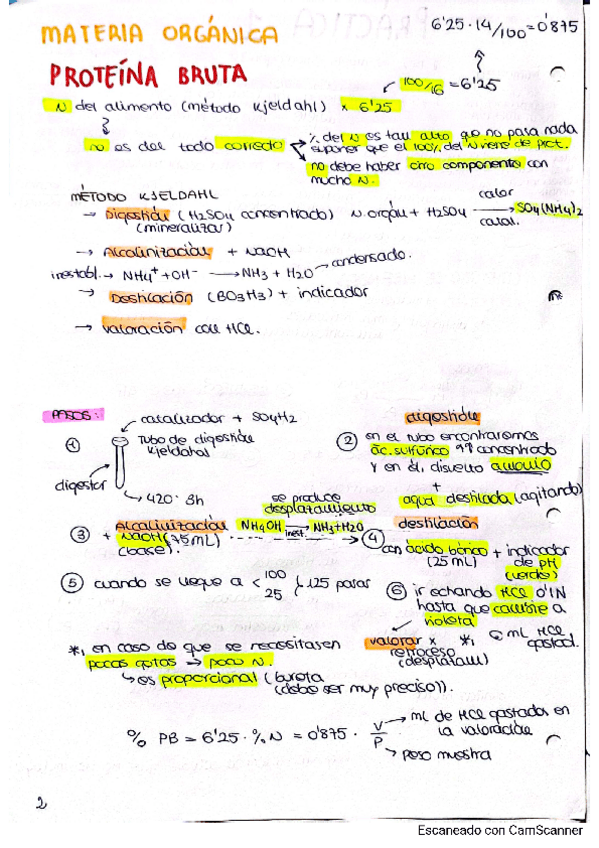 MATERIA ORGÁNICA
6'25 · 14/100 = 0'875
PROTEÍNA BRUTA
100/16 = 6'25
N del alimento (método Kjeldahl) x 6'25
no es del todo correcto
% del N es tan alto que no pasa nada
suponer que el 100% del N viene de prot.
no debe haber otro componente con
mucho N.
MÉTODO KJELDAHL
→ Digestión (H2SO4 concentrado) N orgán + H2SO4 calor → SO4(NH4)2
(mineralizar) catal.
→ Alcalinización + NaOH
inestabl. → NH4+ + OH- → NH3 + H2O condensado.
→ Destilación (BO3H3) + indicador
→ valoración con HCl.
PASOS:
① catalizador + SO4H2
Tubo de digestión
Kjeldahal
digestor
420 · 3h
digestión
② en el tubo encontraremos
ác. sulfúrico concentrado
y en él, disuelto amonio
+
agua destilada (agitando)
se produce
desplazamiento
③ Alcalinización NH4OH inest. → NH3+H2O
+ NaOH (75mL)
(base).
destilación
④ con ácido bórico + indicador
(25 mL) de pH
(verde)
⑤ cuando se llegue a < 100 25 } 125 parar
⑥ ir echando HCl 0'1N
hasta que cambie a
violeta
valorar x *1 mL HCl
retroceso gastad.
(desplazam)
*1 en caso de que se necesitasen
pocas gotas → poco N.
es proporcional (bureta
(debe ser muy preciso)).
% PB = 6'25 · % N = 0'875 · V/P
→ mL de HCl gastados en
la valoración
→ peso muestra
2
Escaneado con CamScanner